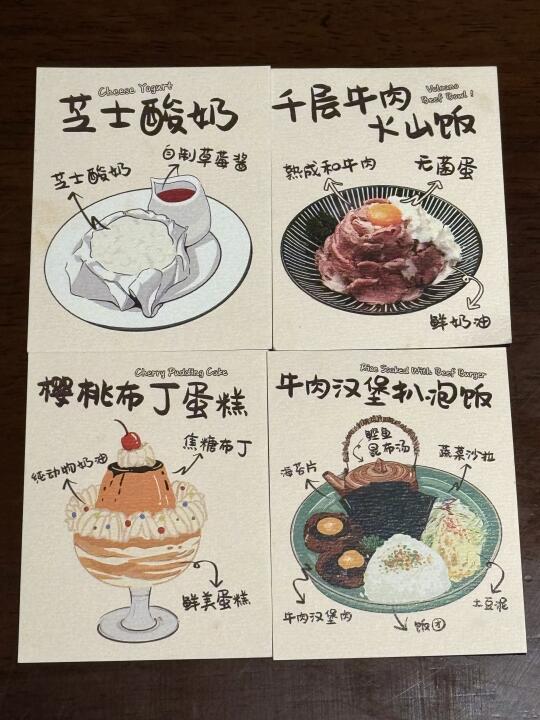 Cheese Yogurt
芝士酸奶
芝士酸奶
自制草莓酱
Volcano
Beef Bowl !
千层牛肉
火山饭
熟成和牛肉
无菌蛋
鲜奶油
Cherry Pudding Cake
樱桃布丁蛋糕
焦糖布丁
纯动物奶油
鲜美蛋糕
Rice Soaked With Beef Burger
牛肉汉堡扒泡饭
鲣鱼
昆布汤
蔬菜沙拉
海苔片
牛肉汉堡肉
饭团
土豆泥